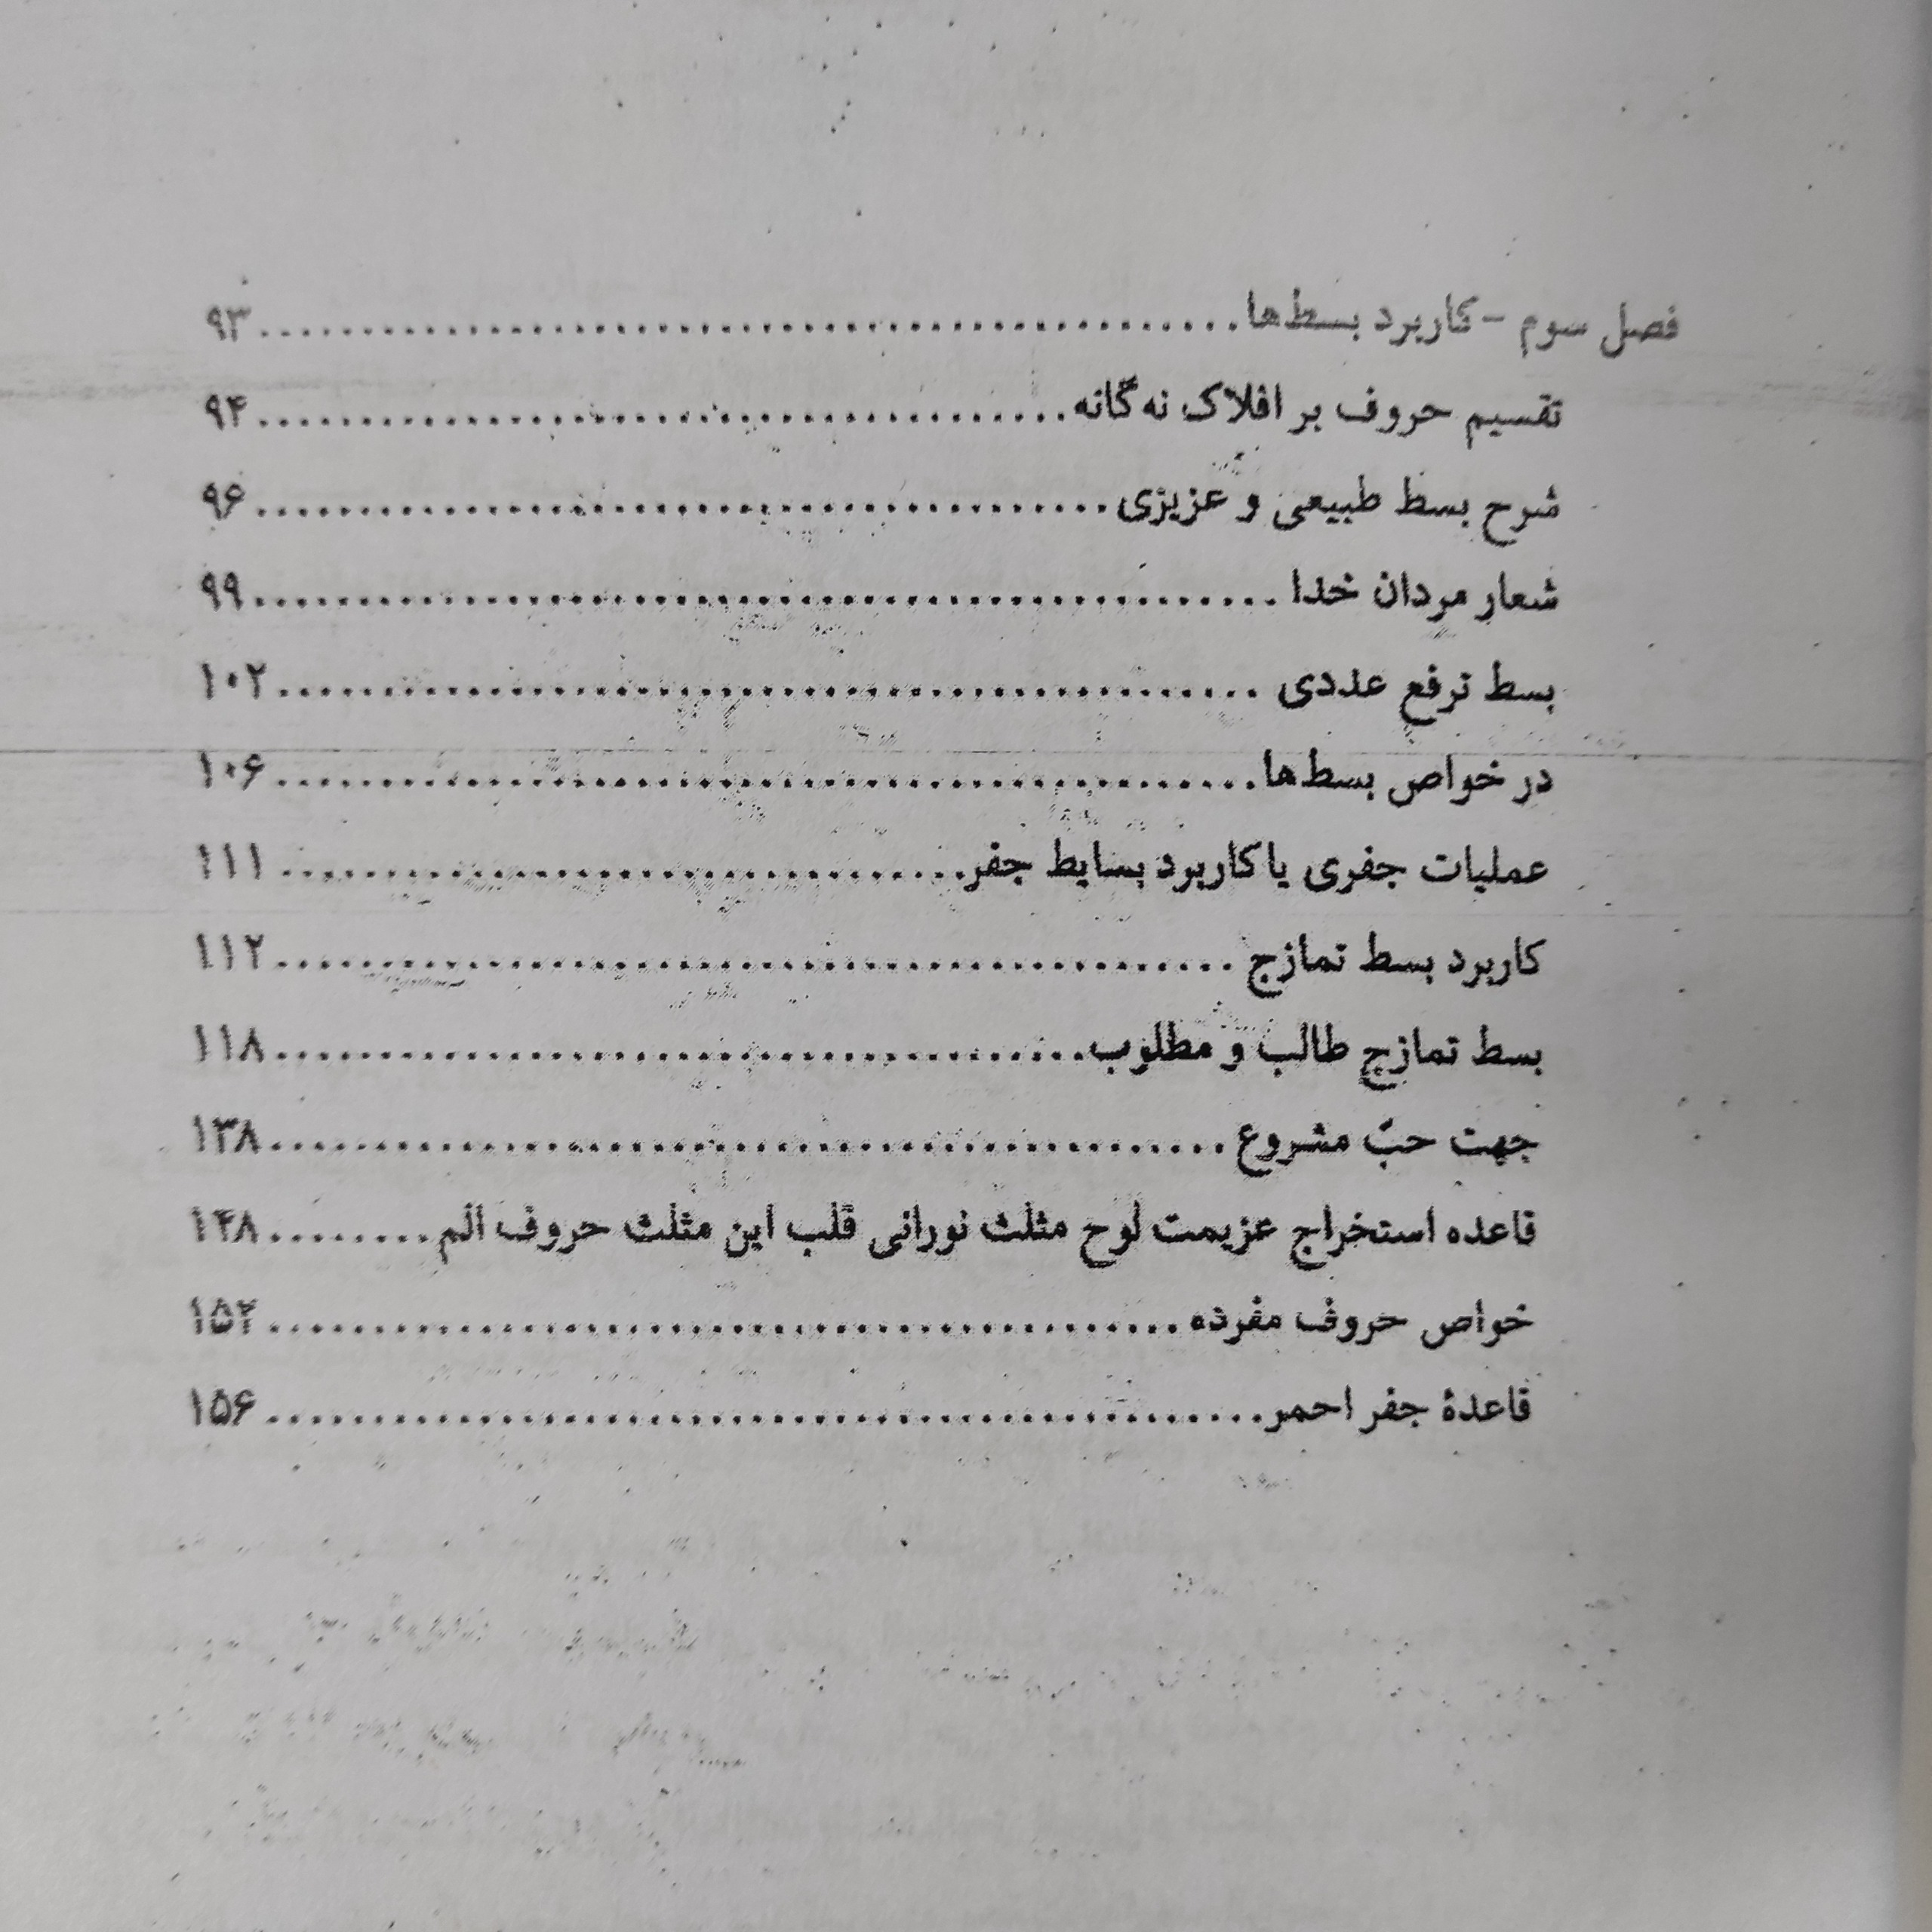 فصل سوم - کاربرد بسط‌ها........................................ ۹۳
تقسیم حروف بر افلاک نه گانه........................................ ۹۴
شرح بسط طبیعی و عزیزی........................................ ۹۶
شعار مردان خدا ........................................ ۹۹
بسط ترفع عددی ........................................ ۱۰۲
در خواص بسط‌ها........................................ ۱۰۶
عملیات جفری یا کاربرد بسایط جفر........................................ ۱۱۱
کاربرد بسط تمازج ........................................ ۱۱۲
بسط تمازج طالب و مطلوب........................................ ۱۱۸
جهت حبّ مشروع ........................................ ۱۳۸
قاعده استخراج عزیمت لوح مثلث نورانی قلب این مثلث حروف الم ......... ۱۴۸
خواص حروف مفرده........................................ ۱۵۲
قاعدهٔ جفر احمر........................................ ۱۵۶